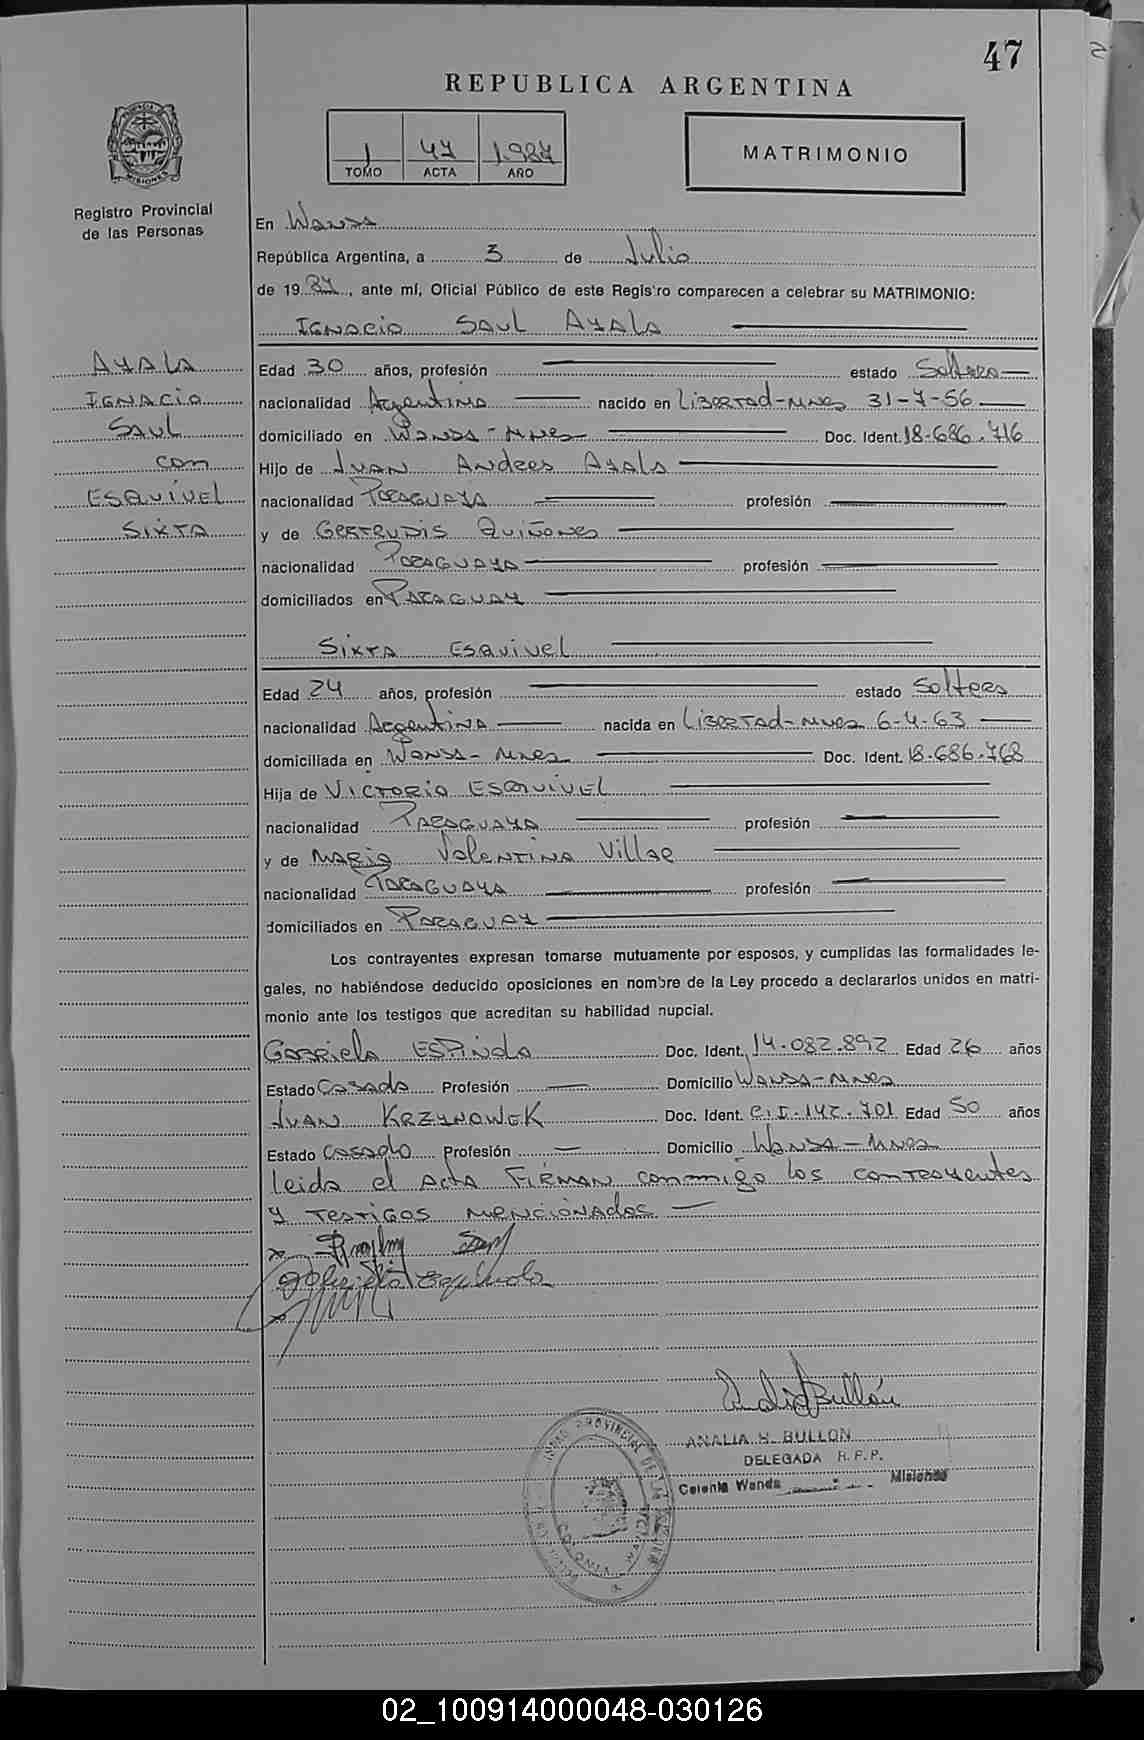 47
REPUBLICA ARGENTINA
1 47 1987
TOMO ACTA AÑO
MATRIMONIO
MISIONES
Registro Provincial
de las Personas
AYALA
IGNACIO
SAUL
con
ESQUIVEL
SIXTA
En Wanda
República Argentina, a 3 de Julio
de 1987, ante mí, Oficial Público de este Registro comparecen a celebrar su MATRIMONIO:
IGNACIO SAUL AYALA
Edad 30 años, profesión estado Soltero
nacionalidad Argentina nacido en LIBERTAD-MNES 31-7-56
domiciliado en WANDA-MNES Doc. Ident. 18.686.716
Hijo de JUAN ANDRES AYALA
nacionalidad PARAGUAYA profesión
y de GERTRUDIS QUIÑONES
nacionalidad PARAGUAYA profesión
domiciliados en PARAGUAY
SIXTA ESQUIVEL
Edad 24 años, profesión estado Soltera
nacionalidad Argentina nacida en LIBERTAD-MNES 6-4-63
domiciliada en WANDA-MNES Doc. Ident. 18.686.768
Hija de VICTORIO ESQUIVEL
nacionalidad PARAGUAYA profesión
y de MARIA VALENTINA Villar
nacionalidad PARAGUAYA profesión
domiciliados en PARAGUAY
Los contrayentes expresan tomarse mutuamente por esposos, y cumplidas las formalidades le-
gales, no habiéndose deducido oposiciones en nombre de la Ley procedo a declararlos unidos en matri-
monio ante los testigos que acreditan su habilidad nupcial.
Gabriela ESPINOLA Doc. Ident. 14.082.892 Edad 26 años
Estado Casada Profesión Domicilio WANDA-MNES
JUAN KRZYNOWEK Doc. Ident. C.I.142.701 Edad 50 años
Estado casado Profesión Domicilio WANDA-MNES
leida el Acta FIRMAN conmigo los contrayentes
y TESTIGOS MENCIONADOS
Analia Bullón
ANALIA H. BULLON
DELEGADA R.P.P.
Colonia Wanda Misiones
02_100914000048-030126